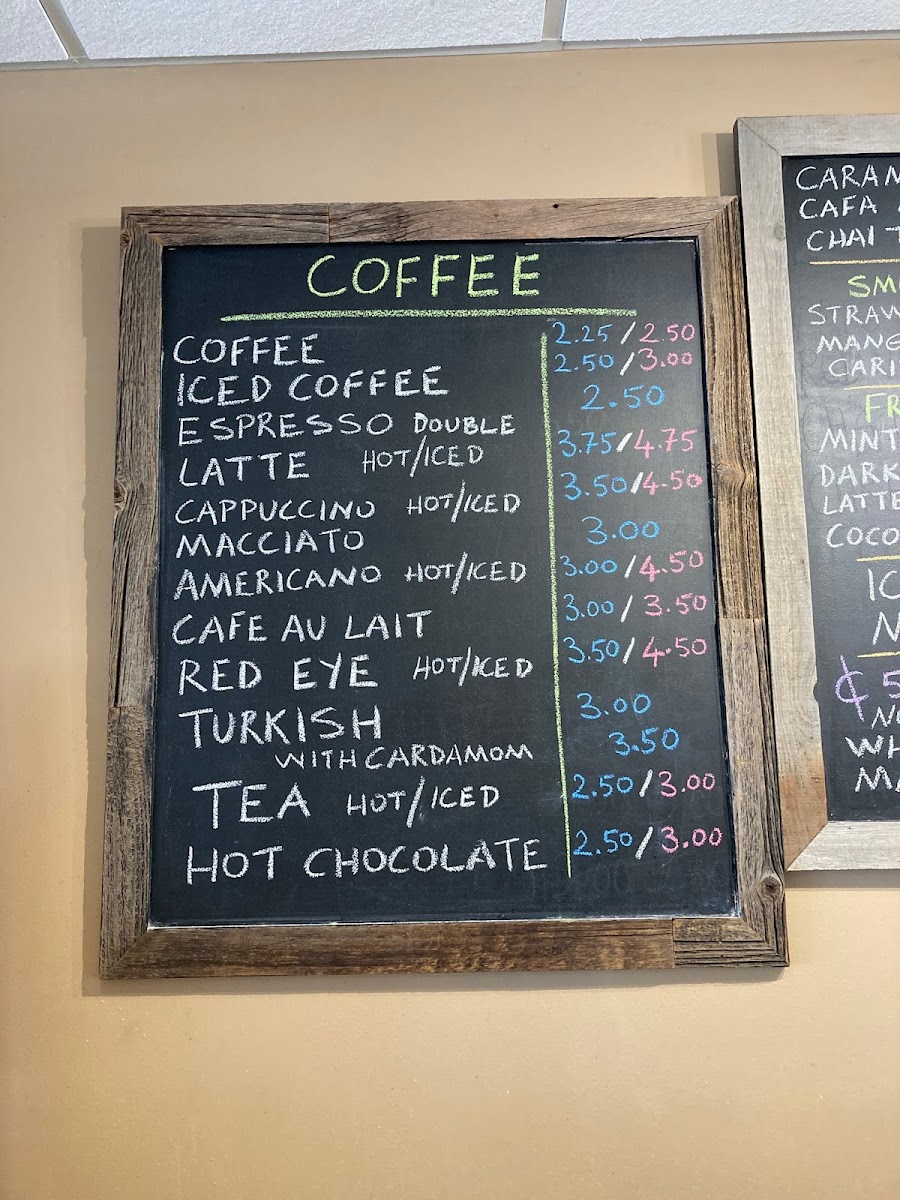 COFFEE
COFFEE 2.25/2.50
ICED COFFEE 2.50/3.00
ESPRESSO DOUBLE 2.50
LATTE HOT/ICED 3.75/4.75
CAPPUCCINO HOT/ICED 3.50/4.50
MACCIATO 3.00
AMERICANO HOT/ICED 3.00/4.50
CAFE AU LAIT 3.00/3.50
RED EYE HOT/ICED 3.50/4.50
TURKISH 3.00
WITH CARDAMOM 3.50
TEA HOT/ICED 2.50/3.00
HOT CHOCOLATE 2.50/3.00
CARAM
CAFA
CHAI T
SMO
STRAW
MANG
CARI
FR
MINT
DARK
LATTE
COCO
IC
N
₵5
NO
WH
MA